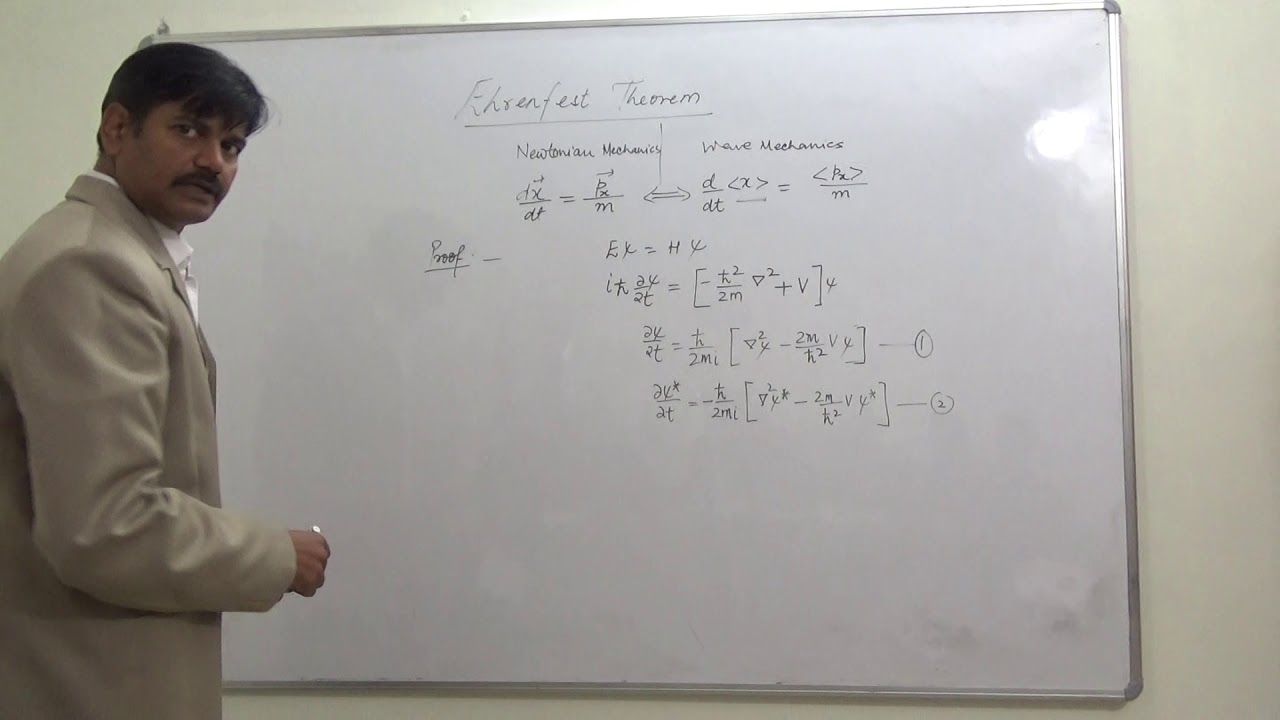 Ehrenfest Theorem
Newtonian Mechanics | Wave Mechanics
dx⃗/dt = p⃗ₓ/m ⟺ d/dt <x> = <pₓ>/m
Proof. — Eψ = Hψ
iħ ∂ψ/∂t = [-ħ²/2m ∇² + V]ψ
∂ψ/∂t = ħ/2mi [∇²ψ - 2m/ħ² Vψ] — ①
∂ψ*/∂t = -ħ/2mi [∇²ψ* - 2m/ħ² Vψ*] — ②